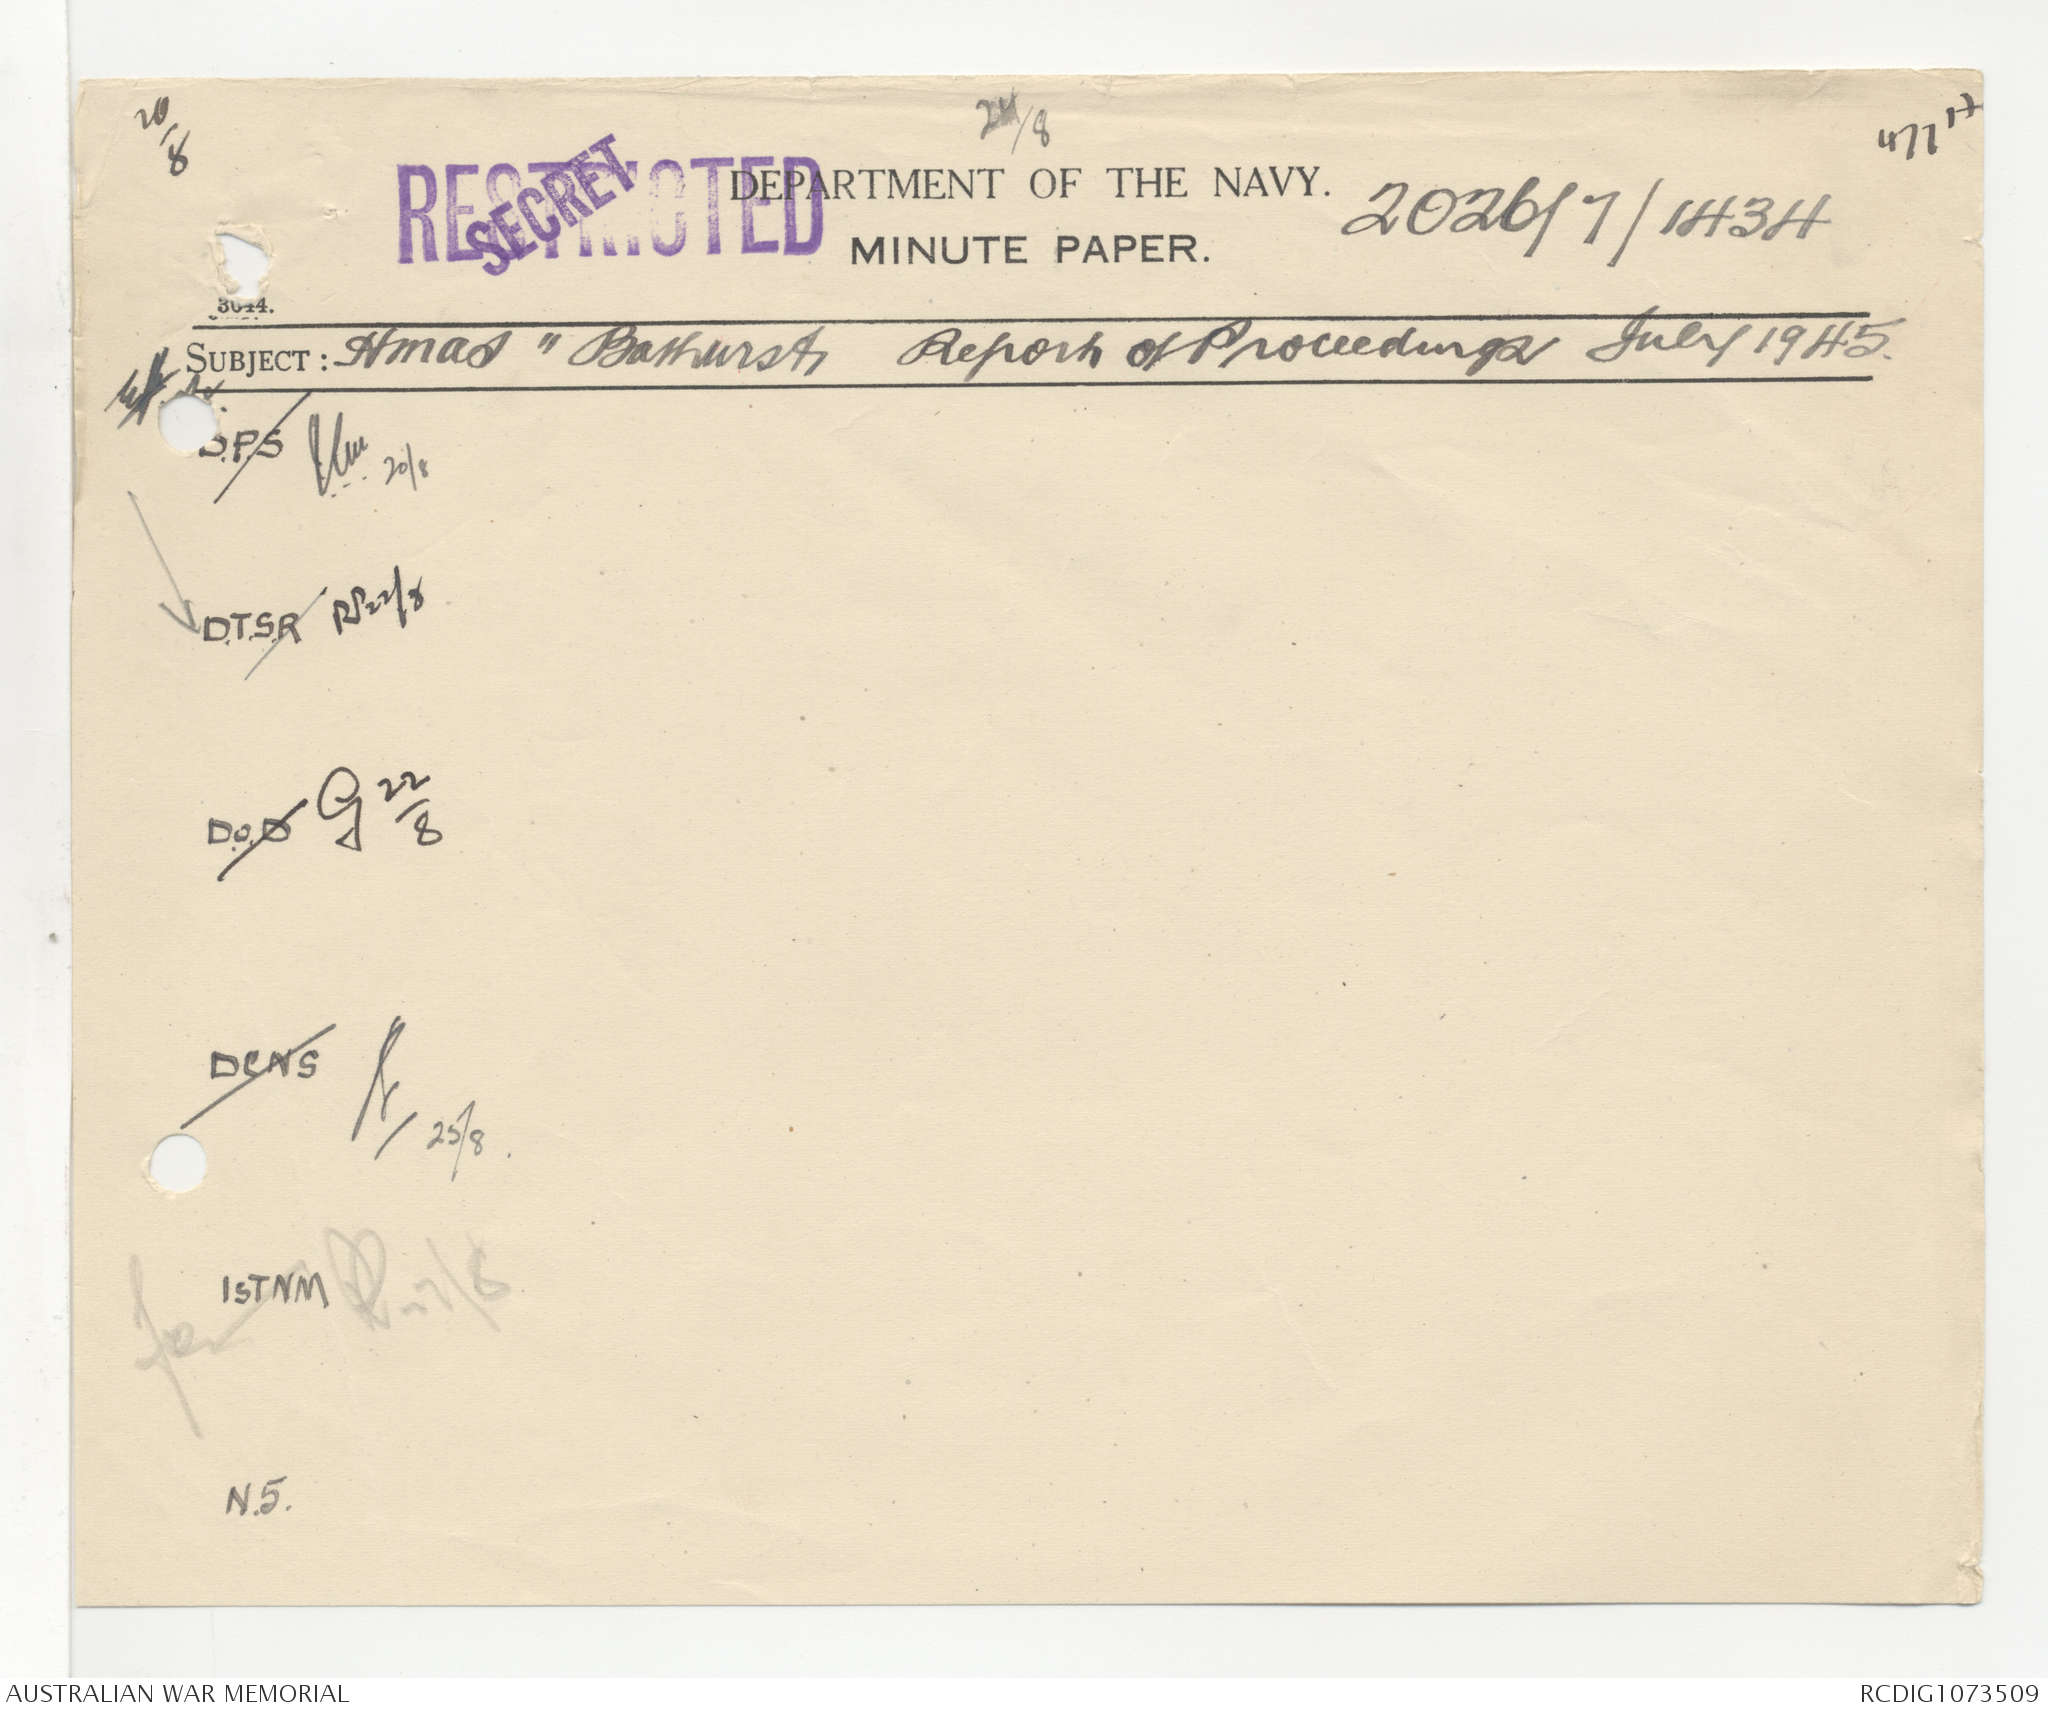 20/8
24/8
477
RESTRICTED
SECRET
DEPARTMENT OF THE NAVY.
2026/7/1434
MINUTE PAPER.
3044.
SUBJECT: HMAS "Bathurst, Report of Proceedings July 1945.
D.P.S 20/8
D.T.S.R 22/8
D.O.D G 22/8
DCNS 25/8.
1STNM
N.5.
AUSTRALIAN WAR MEMORIAL
RCDIG1073509